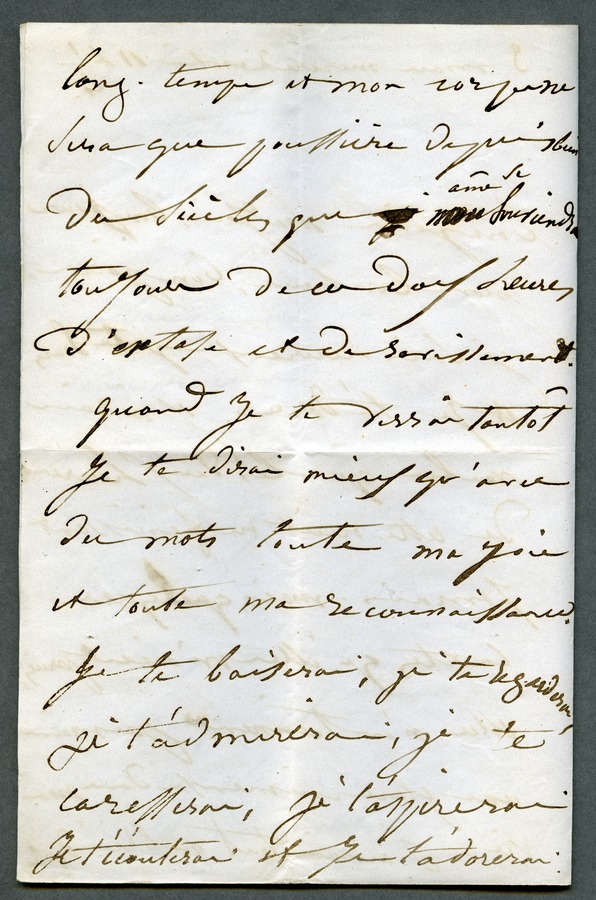 long-temps et mon corps ne
sera que poussière depuis bien
des siècles que mon âme se souviendra
toujours de ces doux heures
d'extase et de ravissement.
quand je te verrai tantôt
Je te dirai mieux qu'avec
des mots toute ma joie
et toute ma reconnaissance.
Je te baiserai, je te regarderai,
je t'admirerai, je te
caresserai, je t'aspirerai
Je t'écouterai et Je t'adorerai.